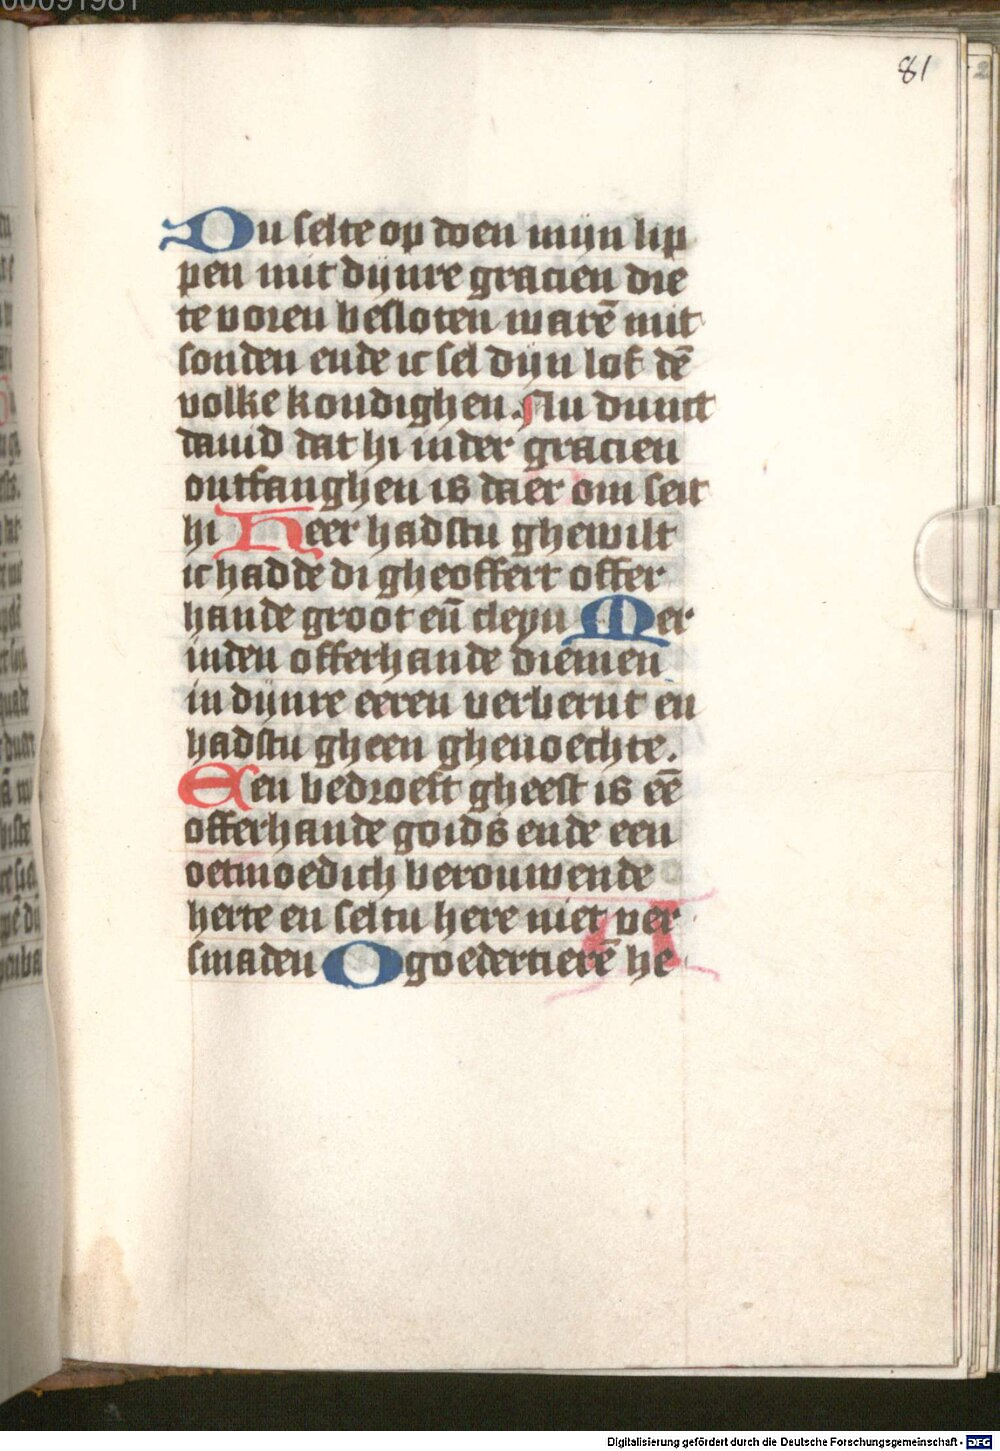 00091981
81
Du selte op doen mijn lip
pen mit dijnre gracien die
te voren besloten warē mit
sonden ende ic sel dijn lof dē
volke kondighen. Nu dunct
dauid dat hi inder gracien
ontfanghen is daer om seit
hi Heer hadstu ghewilt
ic hadde di gheoffert offer
hande groot eñ cleyn Mer
inden offerhande diemen
in dijnre eeren verbernt en
hadstu gheen ghenoechte.
Een bedroeft gheest is eē
offerhande goids ende een
oetmoedich berouwende
herte en seltu here niet ver
smaden O goedertierē he
Digitalisierung gefördert durch die Deutsche Forschungsgemeinschaft - DFG